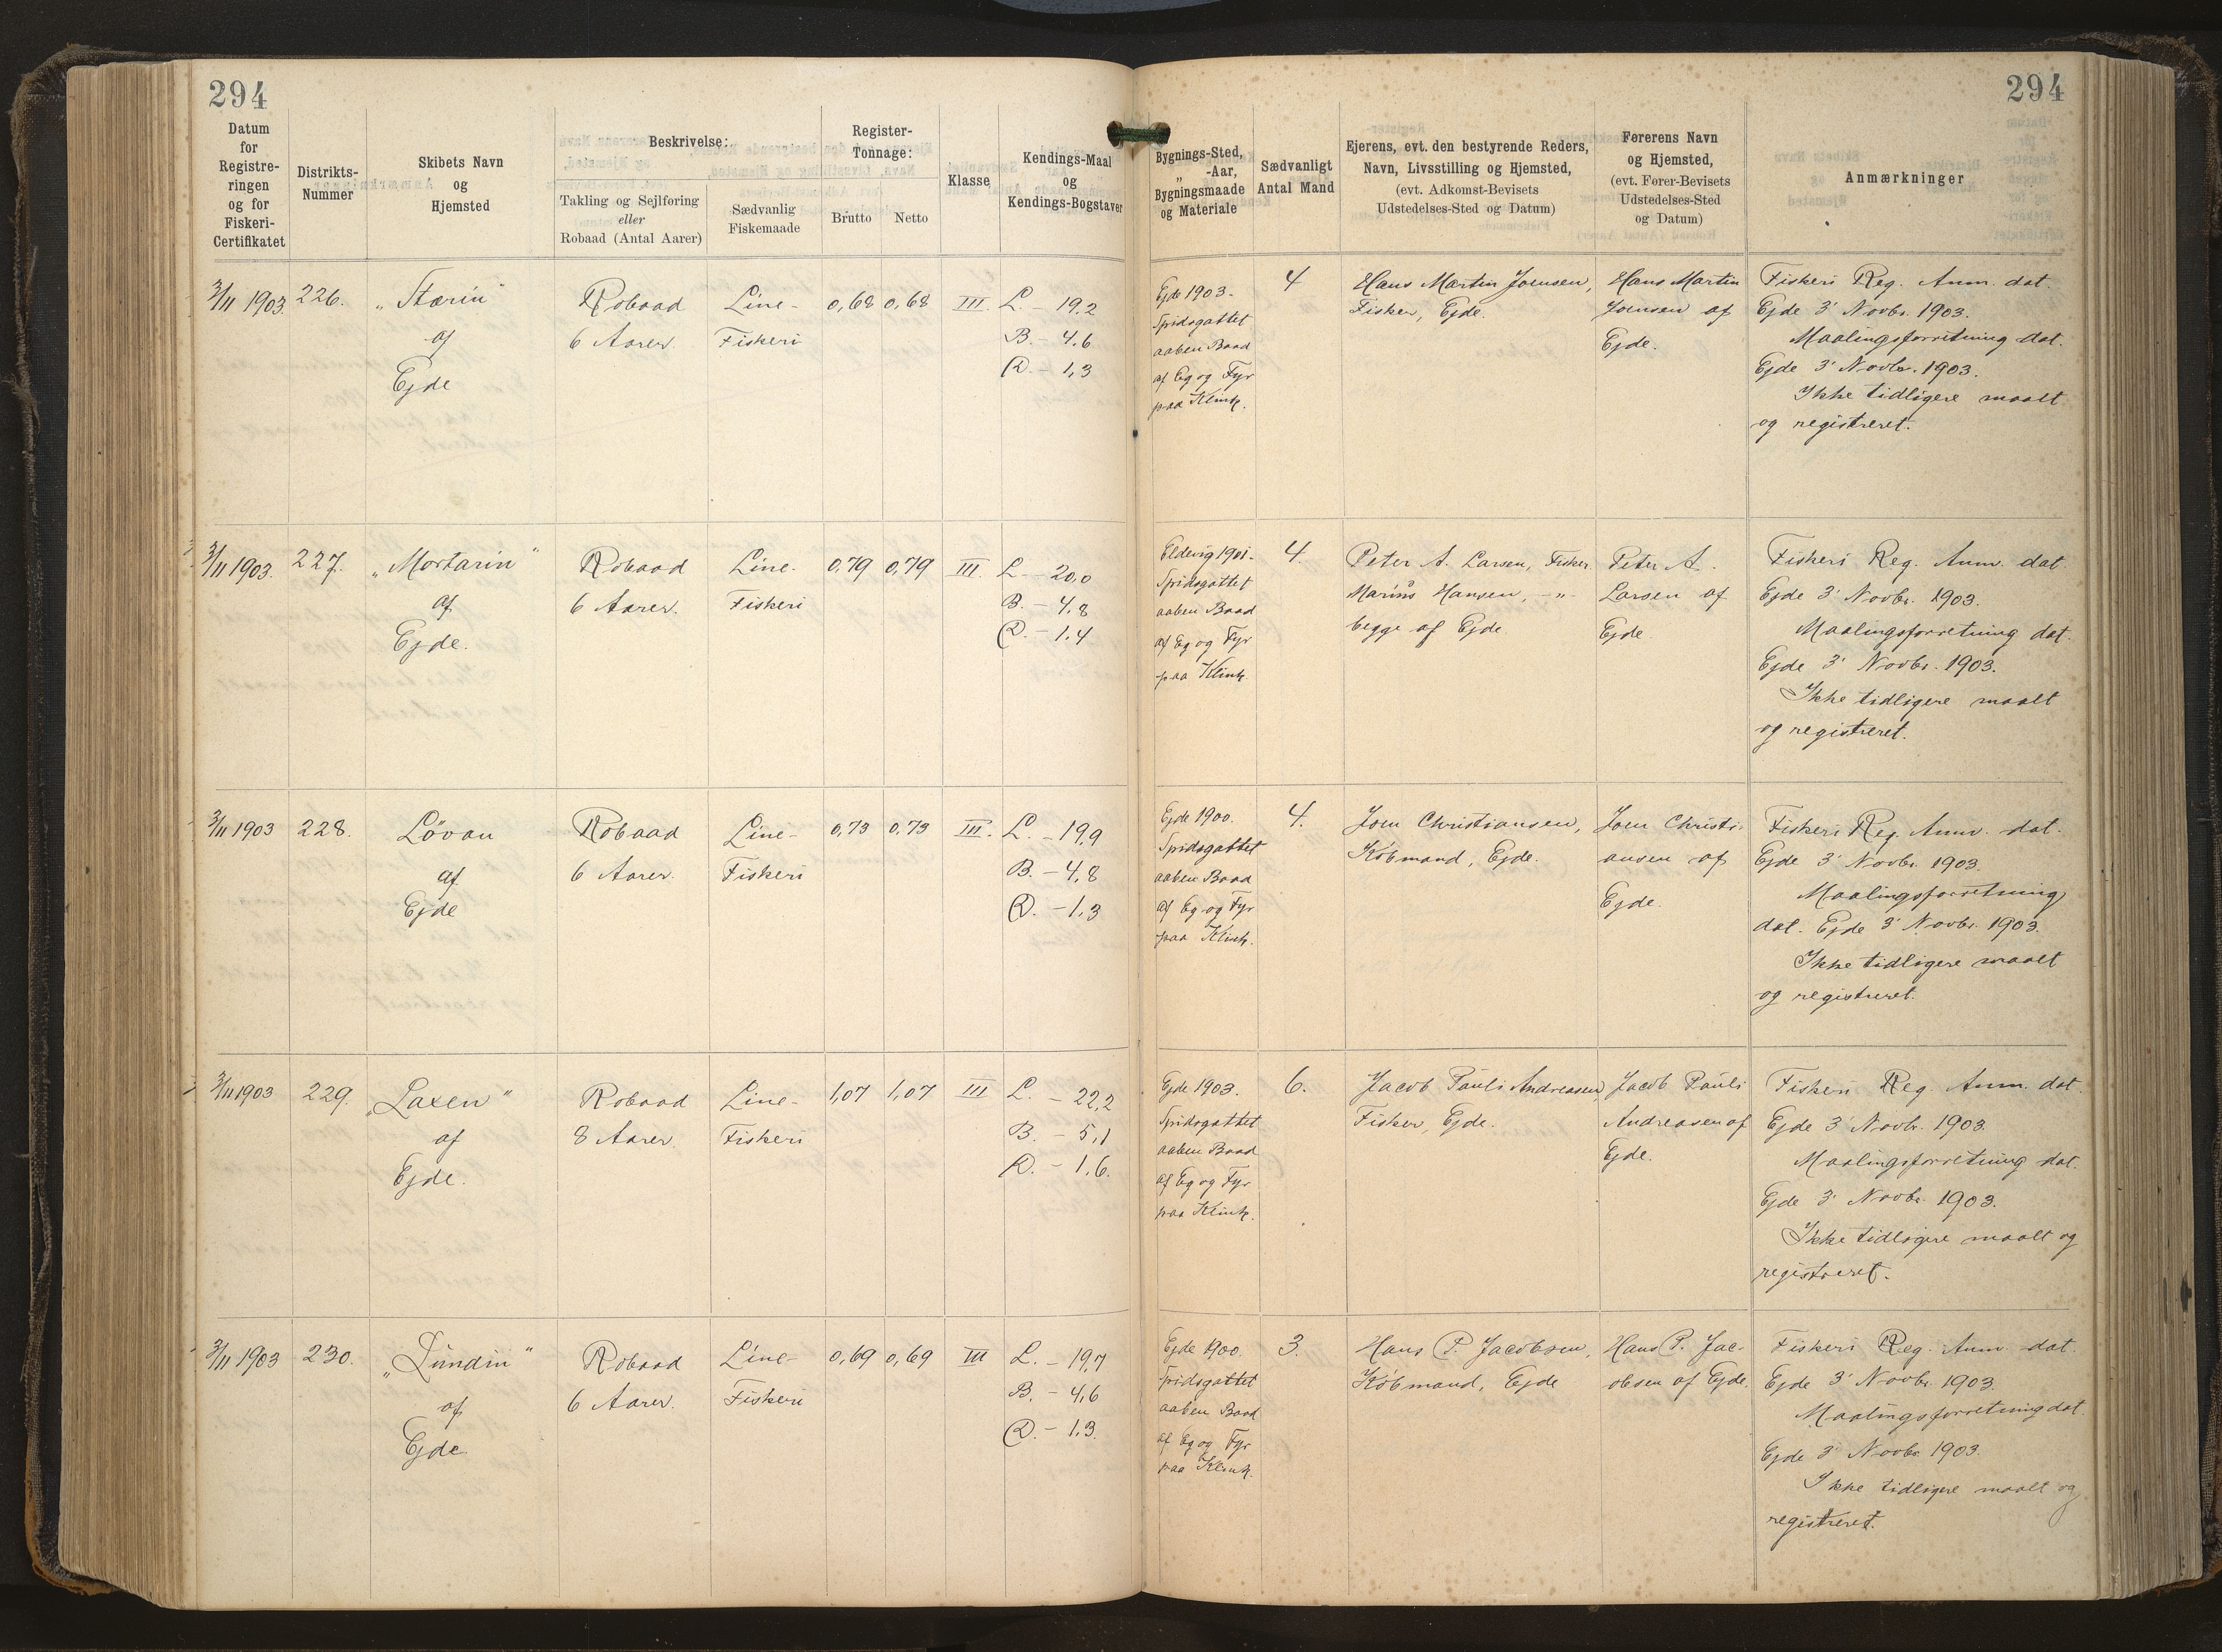 294
294
Datum
for
Registre-
ringen
og for
Fiskeri-
Certifikatet
Distrikts-
Nummer
Skibets Navn
og
Hjemsted
Beskrivelse:
Takling og Sejlføring
eller
Robaad (Antal Aarer)
Sædvanlig
Fiskemaade
Register-
Tonnage:
Brutto
Netto
Klasse
Kendings-Maal
og
Kendings-Bogstaver
Bygnings-Sted,
„ -Aar,
Bygningsmaade
og Materiale
Sædvanligt
Antal Mand
Ejerens, evt. den bestyrende Reders,
Navn, Livsstilling og Hjemsted,
(evt. Adkomst-Bevisets
Udstedelses-Sted og Datum)
Førerens Navn
og Hjemsted,
(evt. Fører-Bevisets
Udstedelses-Sted
og Datum)
Anmærkninger
3/11 1903.
226.
„Stærin"
af
Ejde
Robaad
6 Aarer.
Line-
Fiskeri
0,68
0,68
III.
L. - 19,2
B. - 4,6
D. - 1,3
Ejde 1903.
Spidsgattet
aaben Baad
af Eg og Fyr
paa Klink.
4
Hans Martin Joensen,
Fisker, Ejde.
Hans Martin
Joensen af
Ejde.
Fiskeri Reg. Anm. dat.
Ejde 3' Novbr. 1903.
Maalingsforretning dat.
Ejde 3' Novbr. 1903.
Ikke tidligere maalt
og registreret.
3/11 1903.
227.
„Mortarin"
af
Ejde.
Robaad
6 Aarer.
Line-
Fiskeri
0,79
0,79
III.
L. - 20,0
B. - 4,8
D. - 1,4
Eldevig 1901-
Spidsgattet
aaben Baad
af Eg og Fyr
paa Klink.
4.
Peter A. Larsen, Fisker
Marius Hansen, -„-
begge af Ejde
Peter A.
Larsen af
Ejde
Fiskeri Reg. Anm. dat.
Ejde 3' Novbr. 1903.
Maalingsforretning dat.
Ejde 3' Novbr. 1903.
Ikke tidligere maalt
og registreret.
3/11 1903
228.
Lövan
af
Ejde
Robaad
6 Aarer.
Line-
Fiskeri
0,73
0,73
III.
L. - 19,9
B. - 4,8
D. - 1,3
Ejde 1900.
Spidsgattet
aaben Baad
af Eg og Fyr
paa Klink.
4.
Joen Christiansen,
Købmand, Ejde.
Joen Christi-
ansen af
Ejde.
Fiskeri Reg. Anm. dat.
Ejde 3' Novbr. 1903.
Maalingsforretning
dat. Ejde 3' Novbr. 1903.
Ikke tidligere maalt
og registreret.
3/11 1903
229.
„Laxen"
af
Ejde.
Robaad
8 Aarer.
Line-
Fiskeri
1,07
1,07
III
L. - 22,2
B. - 5,1
D. - 1,6.
Ejde 1903.
Spidsgattet
aaben Baad
af Eg og Fyr
paa Klink.
6.
Jacob Pauli Andreasen,
Fisker, Ejde.
Jacob Pauli
Andreasen af
Ejde.
Fiskeri Reg. Anm. dat.
Ejde 3' Novbr. 1903.
Maalingsforretning dat.
Ejde 3' Novbr. 1903.
Ikke tidligere maalt og
registreret.
3/11 1903
230.
„Lundin"
af
Ejde
Robaad
6 Aarer.
Line-
Fiskeri
0,69
0,69
III
L. - 19,7
B. - 4,6
D. - 1,3.
Ejde 1900.
Spidsgattet
aaben Baad
af Eg og Fyr
paa Klink.
3.
Hans P. Jacobsen,
Købmand, Ejde
Hans P. Jac-
obsen af Ejde.
Fiskeri Reg. Anm. dat.
Ejde 3' Novbr. 1903.
Maalingsforretning dat.
Ejde 3' Novbr. 1903.
Ikke tidligere maalt og
registreret.